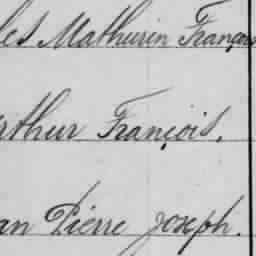 les Mathurin François
rthur François.
an Pierre Joseph.